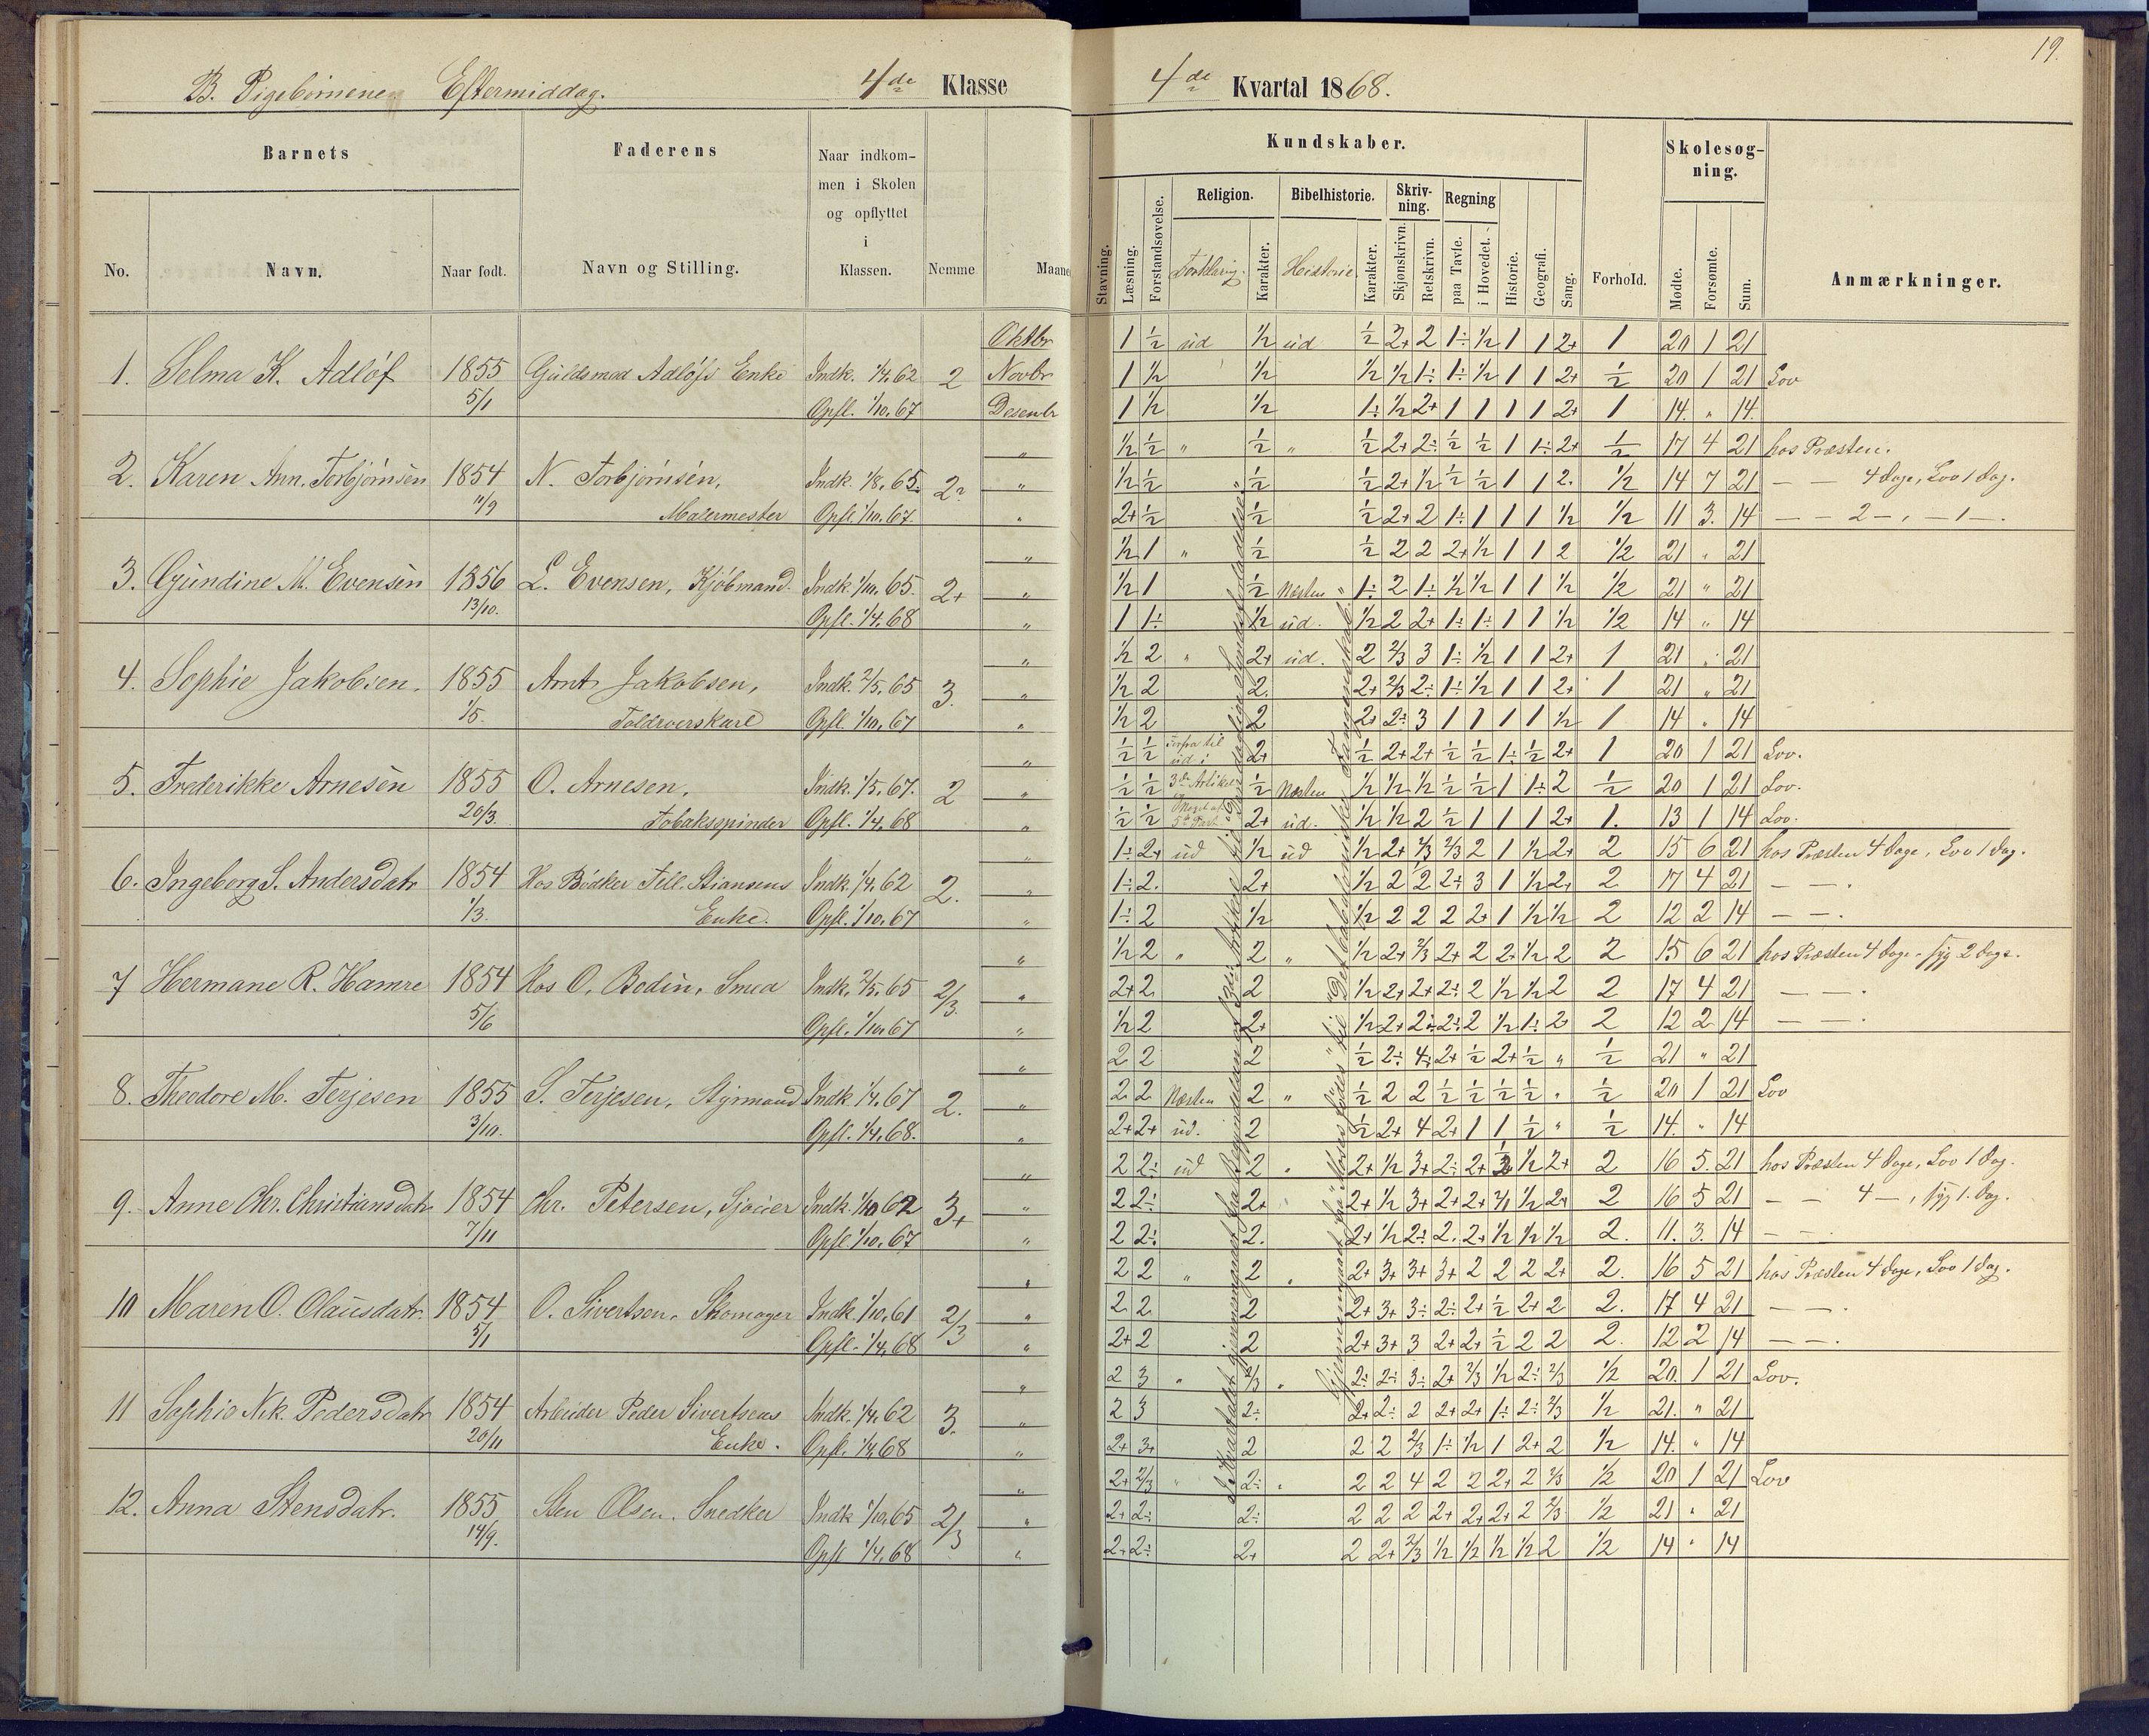 19.
B. Pigebørnene Eftermiddag. 4de Klasse
4de Kvartal 1868.
Barnets Faderens Naar indkommen i Skolen og opflyttet i Klassen. Nemme Maane
No. Navn. Naar født. Navn og Stilling.
Kundskaber. Skolesøgning.
Stavning. Læsning. Forstandsøvelse. Religion. Bibelhistorie. Skrivning. Regning Historie. Geografi. Sang. Forhold. Mødte. Forsømte. Sum. Anmærkninger.
Forklaring. Karakter. Historie Karakter. Skjønskrivn. Retskrivn. paa Tavle. i Hovedet.
Oktbr 1 1/2 ud 1/2 ud 1/2 2+ 2 1÷ 1/2 1 1 2+ 1 20 1 21
1. Selma K. Adløf 1855 Guldsmed Adløfs Enke Indk. 1/4.62 2 Novbr 1 1/2 1/2 1/2 1/2 1÷ 1÷ 1/2 1 1 2+ 1/2 20 1 21 Lov
5/1 Opfl. 1/10.67 Desembr 1 1/2 1/2 1÷ 1/2 2+ 1 1 1 1 2+ 1 14. " 14.
" 1/2 1/2 " 1/2 " 1/2 2+ 2÷ 1/2 1/2 1 1÷ 2+ 1/2 17 4 21 hos Præsten.
2. Karen Ann. Torbjørnsen 1854 N. Torbjørnsen, Indk. 1/8.65. " 1/2 1/2 1/2 1/2 2+ 1/2 1/2 1/2 1 1 2. 1/2 14 7 21 — — 4 Dage, Lov 1 Dag.
11/9 Malermester Opfl. 1/10.67. " 2+ 1/2 1/2 1/2 2+ 2 1÷ 1 1 1 1/2 1/2 11 3. 14 — — 2 —, — 1 —.
" 1/2 1 " 1/2 1/2 2 2 2+ 1/2 1 1 2 1/2 21 " 21
3. Gundine M. Evensen 1856 L. Evensen, Kjøbmand. Indk. 1/10.65. 2+ " 1/2 1 1/2 Næsten 1÷ 2 1÷ 1/2 1/2 1 1 1/2 1/2 21 " 21
13/10. Opfl. 1/4.68 " 1 1÷ 1/2 ud. 1/2 2 2+ 1÷ 1÷ 1 1 1/2 1/2 14 " 14
" 1/2 2 " 2+ ud. 2 2/3 3 1÷ 1/2 1 1 2+ 1 21 " 21
4. Sophie Jakobsen. 1855 Arnt Jakobsen, Indk. 2/5.65 3. " 1/2 2 2. 2+ 2/3 2÷ 1÷ 1/2 1 1 2+ 1 21 " 21
1/5. Toldroerskarl Opfl. 1/10.67 " 1/2 2 2 2+ 2÷ 3 1 1 1 1 1/2 1 14 " 14
" 1/2 1/2 Forfra til ud i 2+ 1/2 2+ 2+ 1/2 1/2 1÷ 1/2 2+ 1 20 1 21 Lov.
5. Frederikke Arnesen 1855 O. Arnesen, Indk. 1/5.67. 2 " 1/2 1/2 3die Artikel 1/2 Næsten 1/2 1/2 1/2 1/2 1/2 1 1÷ 2 1/2 20 1 21 Lov.
20/3. Tobaksspinder Opfl. 1/4.68 " 1/2 1/2 2+ ud. 1/2 1/2 2 1/2 1 1 1 2+ 1. 13 1 14 Lov.
" 1÷ 2+ ud 1/2 ud 1/2 2+ 1/3 2/3 2 1 1/2 2+ 2 15 6 21 hos Præsten 4 Dage, Lov 1 Dag.
6. Ingeborg S. Andersdatr 1854 Hos Bødker Tell. Stiansens Indk. 1/4.62 2. " 1÷ 2. 2+ 1/2 2 2 2÷ 3 1 1/2 2+ 2 17 4 21 — —.
1/3. Enke. Opfl. 1/10.67 " 1÷ 2 1/2 1/2 2 2 2 2+ 1 1/2 1/2 2 12 2 14 — —.
" 1/2 2 " 2 " 1/2 2+ 2/3 2+ 2 2+ 1/2 2 2 15 6 21 hos Præsten 4 Dage. syg 2 Dage.
7 Hermane R. Hamre 1854 Hos O. Bodin, Smed Indk. 2/5.65 2/3. " 2+ 2. 2 1/2 2+ 2+ 2÷ 2 1/2 1/2 2 2 17 4 21 — —.
5/6 Opfl. 1/10.67 " 1/2 2 2+ 1/2 2+ 2÷ 2÷ 2 1/2 1÷ 2+ 2 12 2 14 — —.
" 2 2 2 1/2 2÷ 4÷ 2+ 1/2 2+ 1/2 " 1/2 21 " 21
8. Theodore M. Terjesen 1855 S. Terjesen, Styrmand Indk. 1/4.67 2. " 2 2 Næsten 2 " 1/2 2 2 1/2 1/2 1/2 1/2 " 1/2 20 1 21 Lov
3/10. Opfl. 1/4.68. " 2+ 2+ ud. 2 1/2 2+ 4 2+ 1 1 1/2 " 1/2 14. " 14
" 2 2÷ ud 2 " 2+ 1/2 3+ 2÷ 2+ 1/2 2+ 2 16 5. 21 hos Præsten 4 Dage, Lov 1 Dag.
9. Anne Chr. Christiansdatr. 1854 Chr. Petersen, Sjøuer Indk. 1/10 62 3+ " 2 2÷ 2+ 2+ 1/2 3+ 2+ 2+ 1/2 2+ 2 16 5 21 — — 4 —, syg 1. Dag.
7/11 Opfl 1/10.67 " 2 2÷ 2. 2+ 1/2 2÷ 2. 2+ 1/2 1/2 1/2 2. 11. 3. 14 — —
" 2 2 " 2 " 2+ 3+ 3+ 3+ 2 2 2 2+ 2. 16 5 21 hos Præsten 4 Dage, Lov 1 Dag.
10 Maren O. Olausdatr. 1854 O. Sivertsen. Skomager Indk. 1/10.61 2/3 " 2 2 2 2+ 3+ 3÷ 2÷ 2+ 1/2 2+ 2 2. 17 4 21 — —.
5/1 Opfl. 1/4.68 " 2+ 2 2 2+ 3+ 3 2+ 2+ 1/2 2 2 2. 12 2 14 — —.
" 2 3 " 2/3 " 2÷ 2÷ 3÷ 2+ 2/3 1/2 2÷ 2/3 1/2 20. 1 21 Lov.
11 Sophie Nik. Pedersdatr 1854 Arbeider Peder Sivertsens Indk. 1/4.62 3. " 2 3 2÷ 2+ 2÷ 2 2+ 2+ 1÷ 2÷ 2/3 1/2 21. " 21
20/11 Enke. Opfl. 1/4.68 " 2+ 3+ 2 2 2 2/3 1÷ 1/2 1 2+ 2 1/2 14. " 14
" 2+ 2/3 " 2÷ " 2 2 4 2 2 2+ 2 2/3 1/2 20 1 21 Lov
12. Anna Stensdatr. 1855 Sten Olsen. Snedker Indk 1/10.65 2/3 " 2+ 2÷ 2÷ 2 2 2 2+ 2+ 2+ 2 2/3 1/2 21 " 21
14/9. Opfl 1/4.68 " 2+ 2÷ 2+ 2 2+ 2/3 1/2 1/2 1/2 1/2 2 1/2 14 " 14